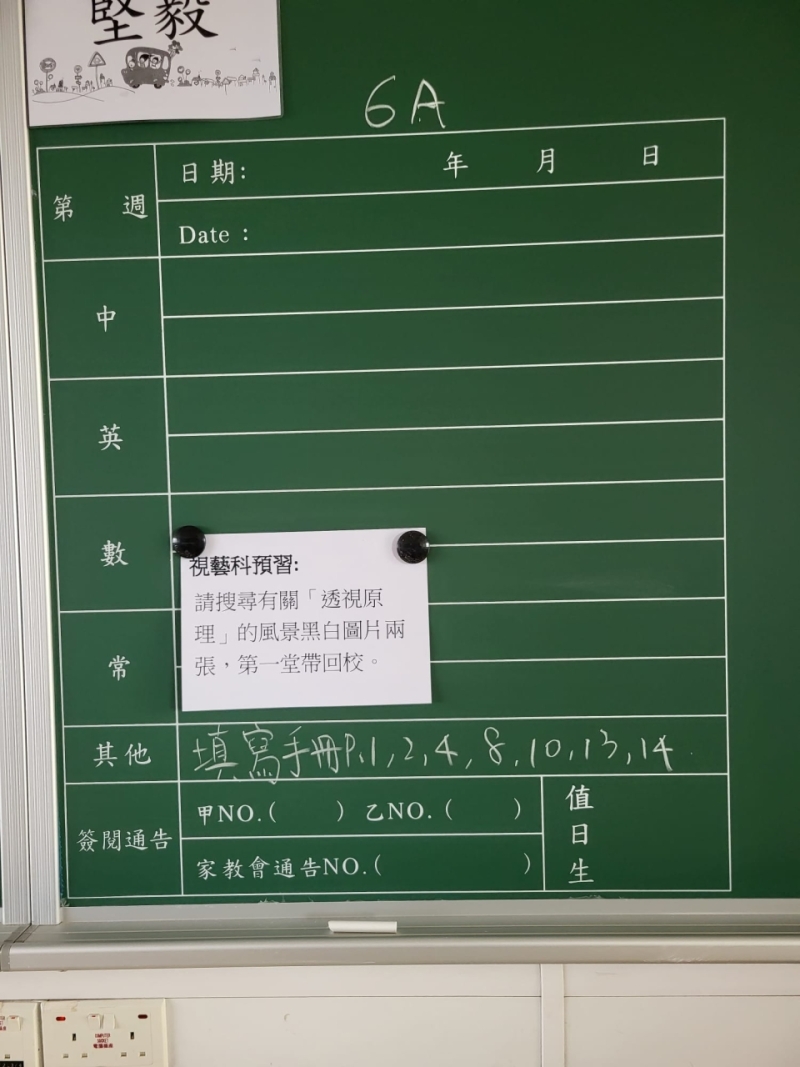 堅毅
6A
第 週
日期: 年 月 日
Date :
中
英
數
視藝科預習:
請搜尋有關「透視原
理」的風景黑白圖片兩
張，第一堂帶回校。
常
其他
填寫手冊P.1,2,4,8,10,13,14
簽閱通告
甲NO.( ) 乙NO.( )
家教會通告NO.( )
值日生
COMPUTER
SOCKET
電腦插座